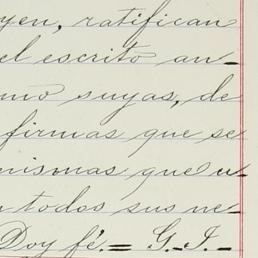 yen, ratifican
el escrito an-
mo suyas, de
firmas que se
mismas que u-
todos sus ne-
Doy fé.= G.I.-